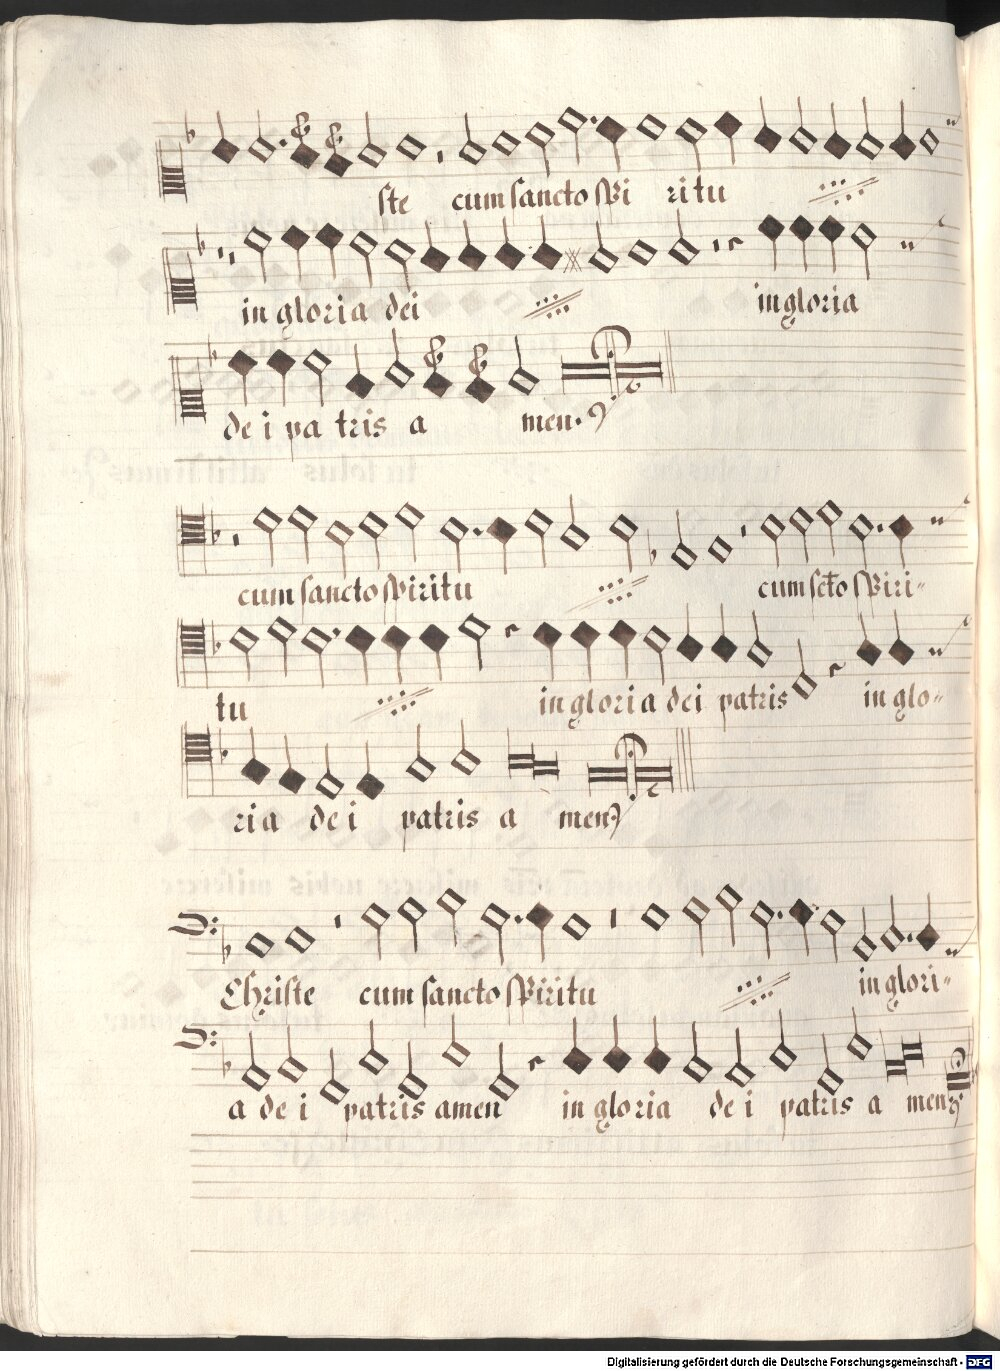 ste cum sancto spi ritu
in gloria dei in gloria
de i pa tris a men
cum sancto spiritu cum scto spiri-
tu in gloria dei patris in glo-
ria de i patris a men
Christe cum sancto spiritu in glori-
a de i patris amen in gloria de i patris a men
Digitalisierung gefördert durch die Deutsche Forschungsgemeinschaft - DFG